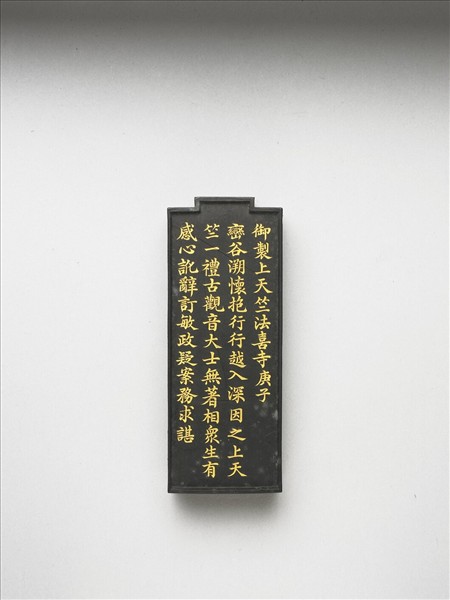 御製上天竺法喜寺庚子
巒谷溯懷抱行行越入深因之上天
竺一禮古觀音大士無著相衆生有
感心訛辭訂敏政疑案務求諶